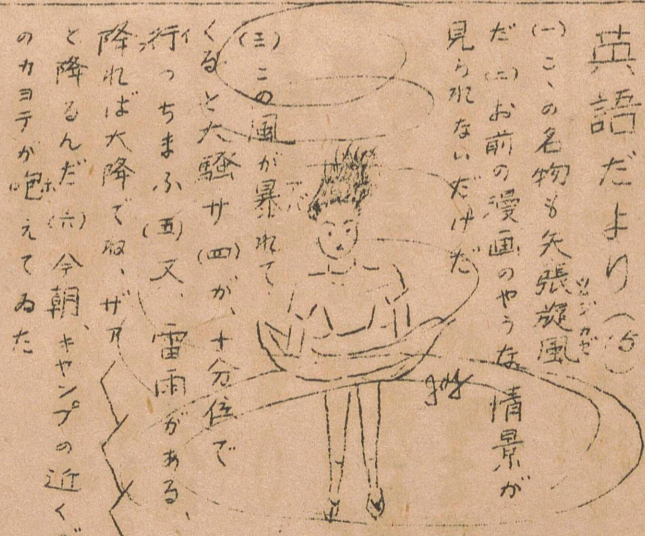 英語だより (5)
(一)こゝの名物も矢張旋風
ツジカゼ
だ (二)お前の漫画のやうな情景が
見られないだけだ
(三)この風が暴れて
くると大騒サ (四)が、十分位で
行っちまふ (五)又、雷雨がある、
降れば大降でね、ザア〱
と降るんだ (六)今朝、キャンプの近く
のカヨテが咆えてゐた
ホ